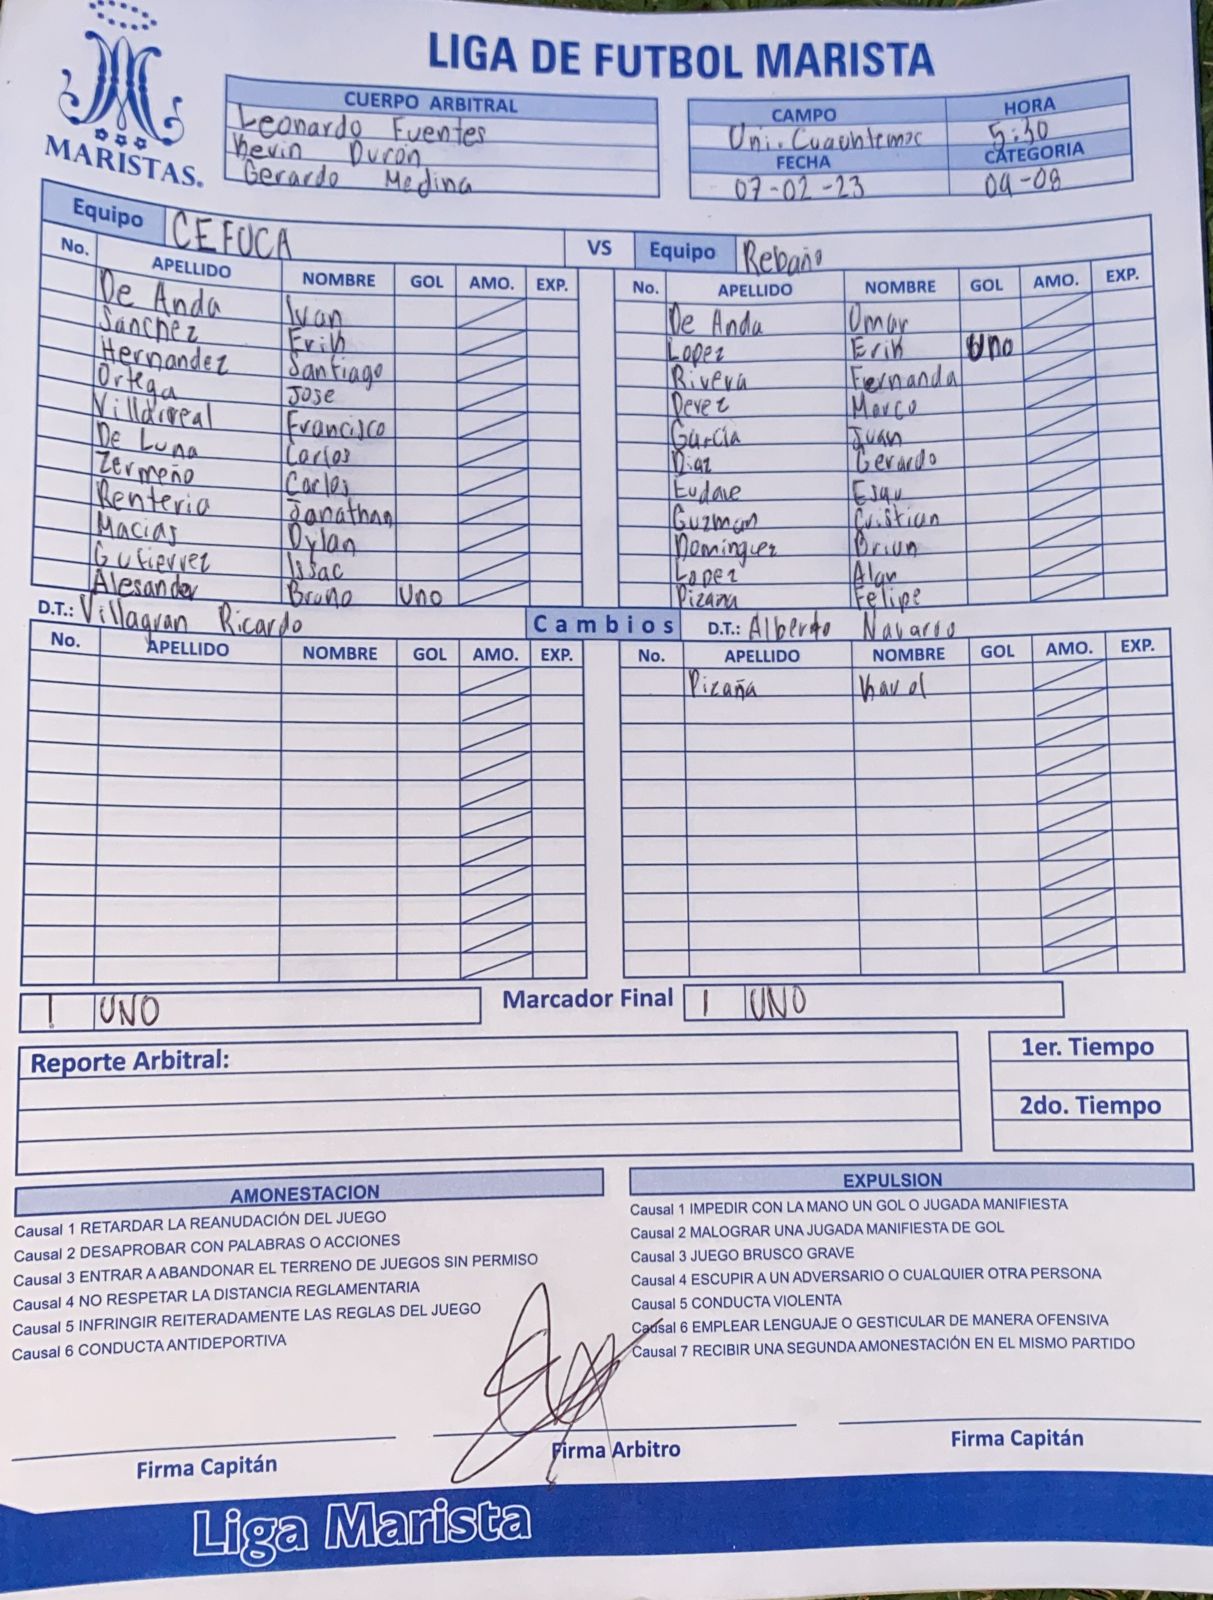 LIGA DE FUTBOL MARISTA
MARISTAS.
CUERPO ARBITRAL
Leonardo Fuentes
Kevin Duron
Gerardo Medina
CAMPO HORA
Uni. Cuauhtemoc 5:30
FECHA CATEGORIA
07-02-23 09-08
Equipo CEFUCA VS Equipo Rebaño
No. APELLIDO NOMBRE GOL AMO. EXP. No. APELLIDO NOMBRE GOL AMO. EXP.
De Anda Ivan De Anda Omar
Sanchez Erik Lopez Erik Uno
Hernandez Santiago Rivera Fernanda
Ortega Jose Perez Marco
Villarreal Francisco Garcia Juan
De Luna Carlos Diaz Gerardo
Zermeño Carlos Eudave Esau
Renteria Jonathan Guzman Cristian
Macias Dylan Dominguez Brian
Gutierrez Issac Lopez Alan
Alesander Bruno Uno Pizaña Felipe
D.T.: Villagran Ricardo Cambios D.T.: Alberto Navarro
No. APELLIDO NOMBRE GOL AMO. EXP. No. APELLIDO NOMBRE GOL AMO. EXP.
Pizaña Karol
1 UNO Marcador Final 1 UNO
Reporte Arbitral:
1er. Tiempo
2do. Tiempo
AMONESTACION
Causal 1 RETARDAR LA REANUDACIÓN DEL JUEGO
Causal 2 DESAPROBAR CON PALABRAS O ACCIONES
Causal 3 ENTRAR A ABANDONAR EL TERRENO DE JUEGOS SIN PERMISO
Causal 4 NO RESPETAR LA DISTANCIA REGLAMENTARIA
Causal 5 INFRINGIR REITERADAMENTE LAS REGLAS DEL JUEGO
Causal 6 CONDUCTA ANTIDEPORTIVA
EXPULSION
Causal 1 IMPEDIR CON LA MANO UN GOL O JUGADA MANIFIESTA
Causal 2 MALOGRAR UNA JUGADA MANIFIESTA DE GOL
Causal 3 JUEGO BRUSCO GRAVE
Causal 4 ESCUPIR A UN ADVERSARIO O CUALQUIER OTRA PERSONA
Causal 5 CONDUCTA VIOLENTA
Causal 6 EMPLEAR LENGUAJE O GESTICULAR DE MANERA OFENSIVA
Causal 7 RECIBIR UNA SEGUNDA AMONESTACIÓN EN EL MISMO PARTIDO
Firma Capitán Firma Arbitro Firma Capitán
Liga Marista